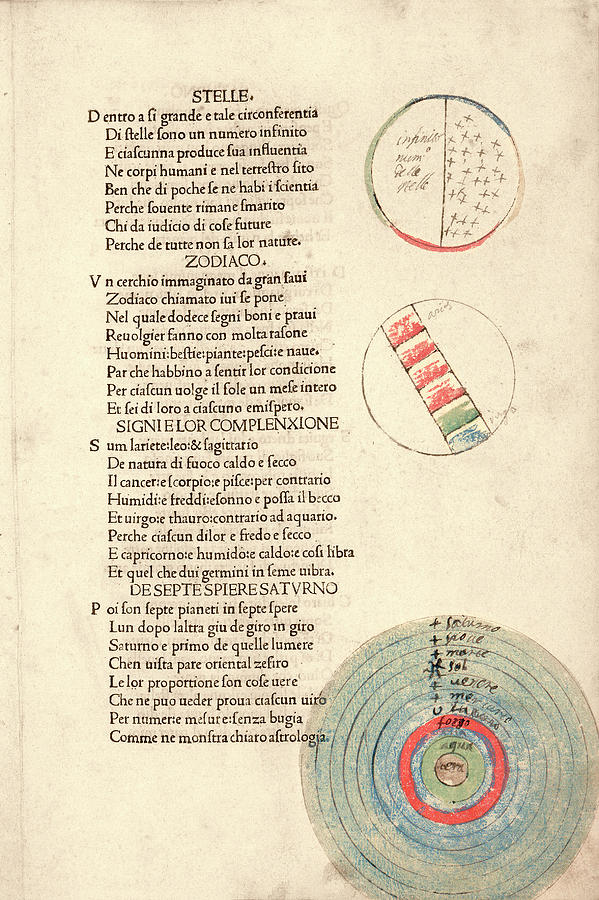 STELLE.
D entro a ſi grande e tale circonferentia
Di ſtelle ſono un numero infinito
E ciaſcunna produce ſua influentia
Ne corpi humani e nel terreſtro ſito
Ben che di poche ſe ne habi i ſcientia
Perche ſouente rimane ſmarito
Chi da iudicio di coſe future
Perche de tutte non ſa lor nature.
ZODIACO.
V n cerchio immaginato da gran ſaui
Zodiaco chiamato iui ſe pone
Nel quale dodece ſegni boni e praui
Reuolgier fanno con molta raſone
Huomini:beſtie:piante:peſci:e naue.
Par che habbino a ſentir lor condicione
Per ciaſcun uolge il ſole un meſe intero
Et ſei di loro a ciaſcuno emiſpero.
SIGNI E LOR COMPLENXIONE
S um lariete:leo:& ſagittario
De natura di fuoco caldo e ſecco
Il cancer:e ſcorpio:e piſce:per contrario
Humidi:e freddi:eſonno e poſſa il becco
Et uirgo:e thauro:contrario ad aquario.
Perche ciaſcun dilor e fredo e ſecco
E capricorno:e humido:e caldo:e coſi libra
Et quel che dui germini in ſeme uibra.
DE SEPTE SPIERE SATVRNO
P oi ſon ſepte pianeti in ſepte ſpere
Lun dopo laltra giu de giro in giro
Saturno e primo de quelle lumere
Chen uiſta pare oriental zefiro
Le lor proportione ſon coſe uere
Che ne puo ueder proua ciaſcun uiro
Per numer:e meſure:ſenza bugia
Comme ne monſtra chiaro aſtrologia.
infinito
num°
delle
ſtelle
aries
virgo
saturno
jove
marte
sol
venere
mercurio
luna
fogo
aqua
terra